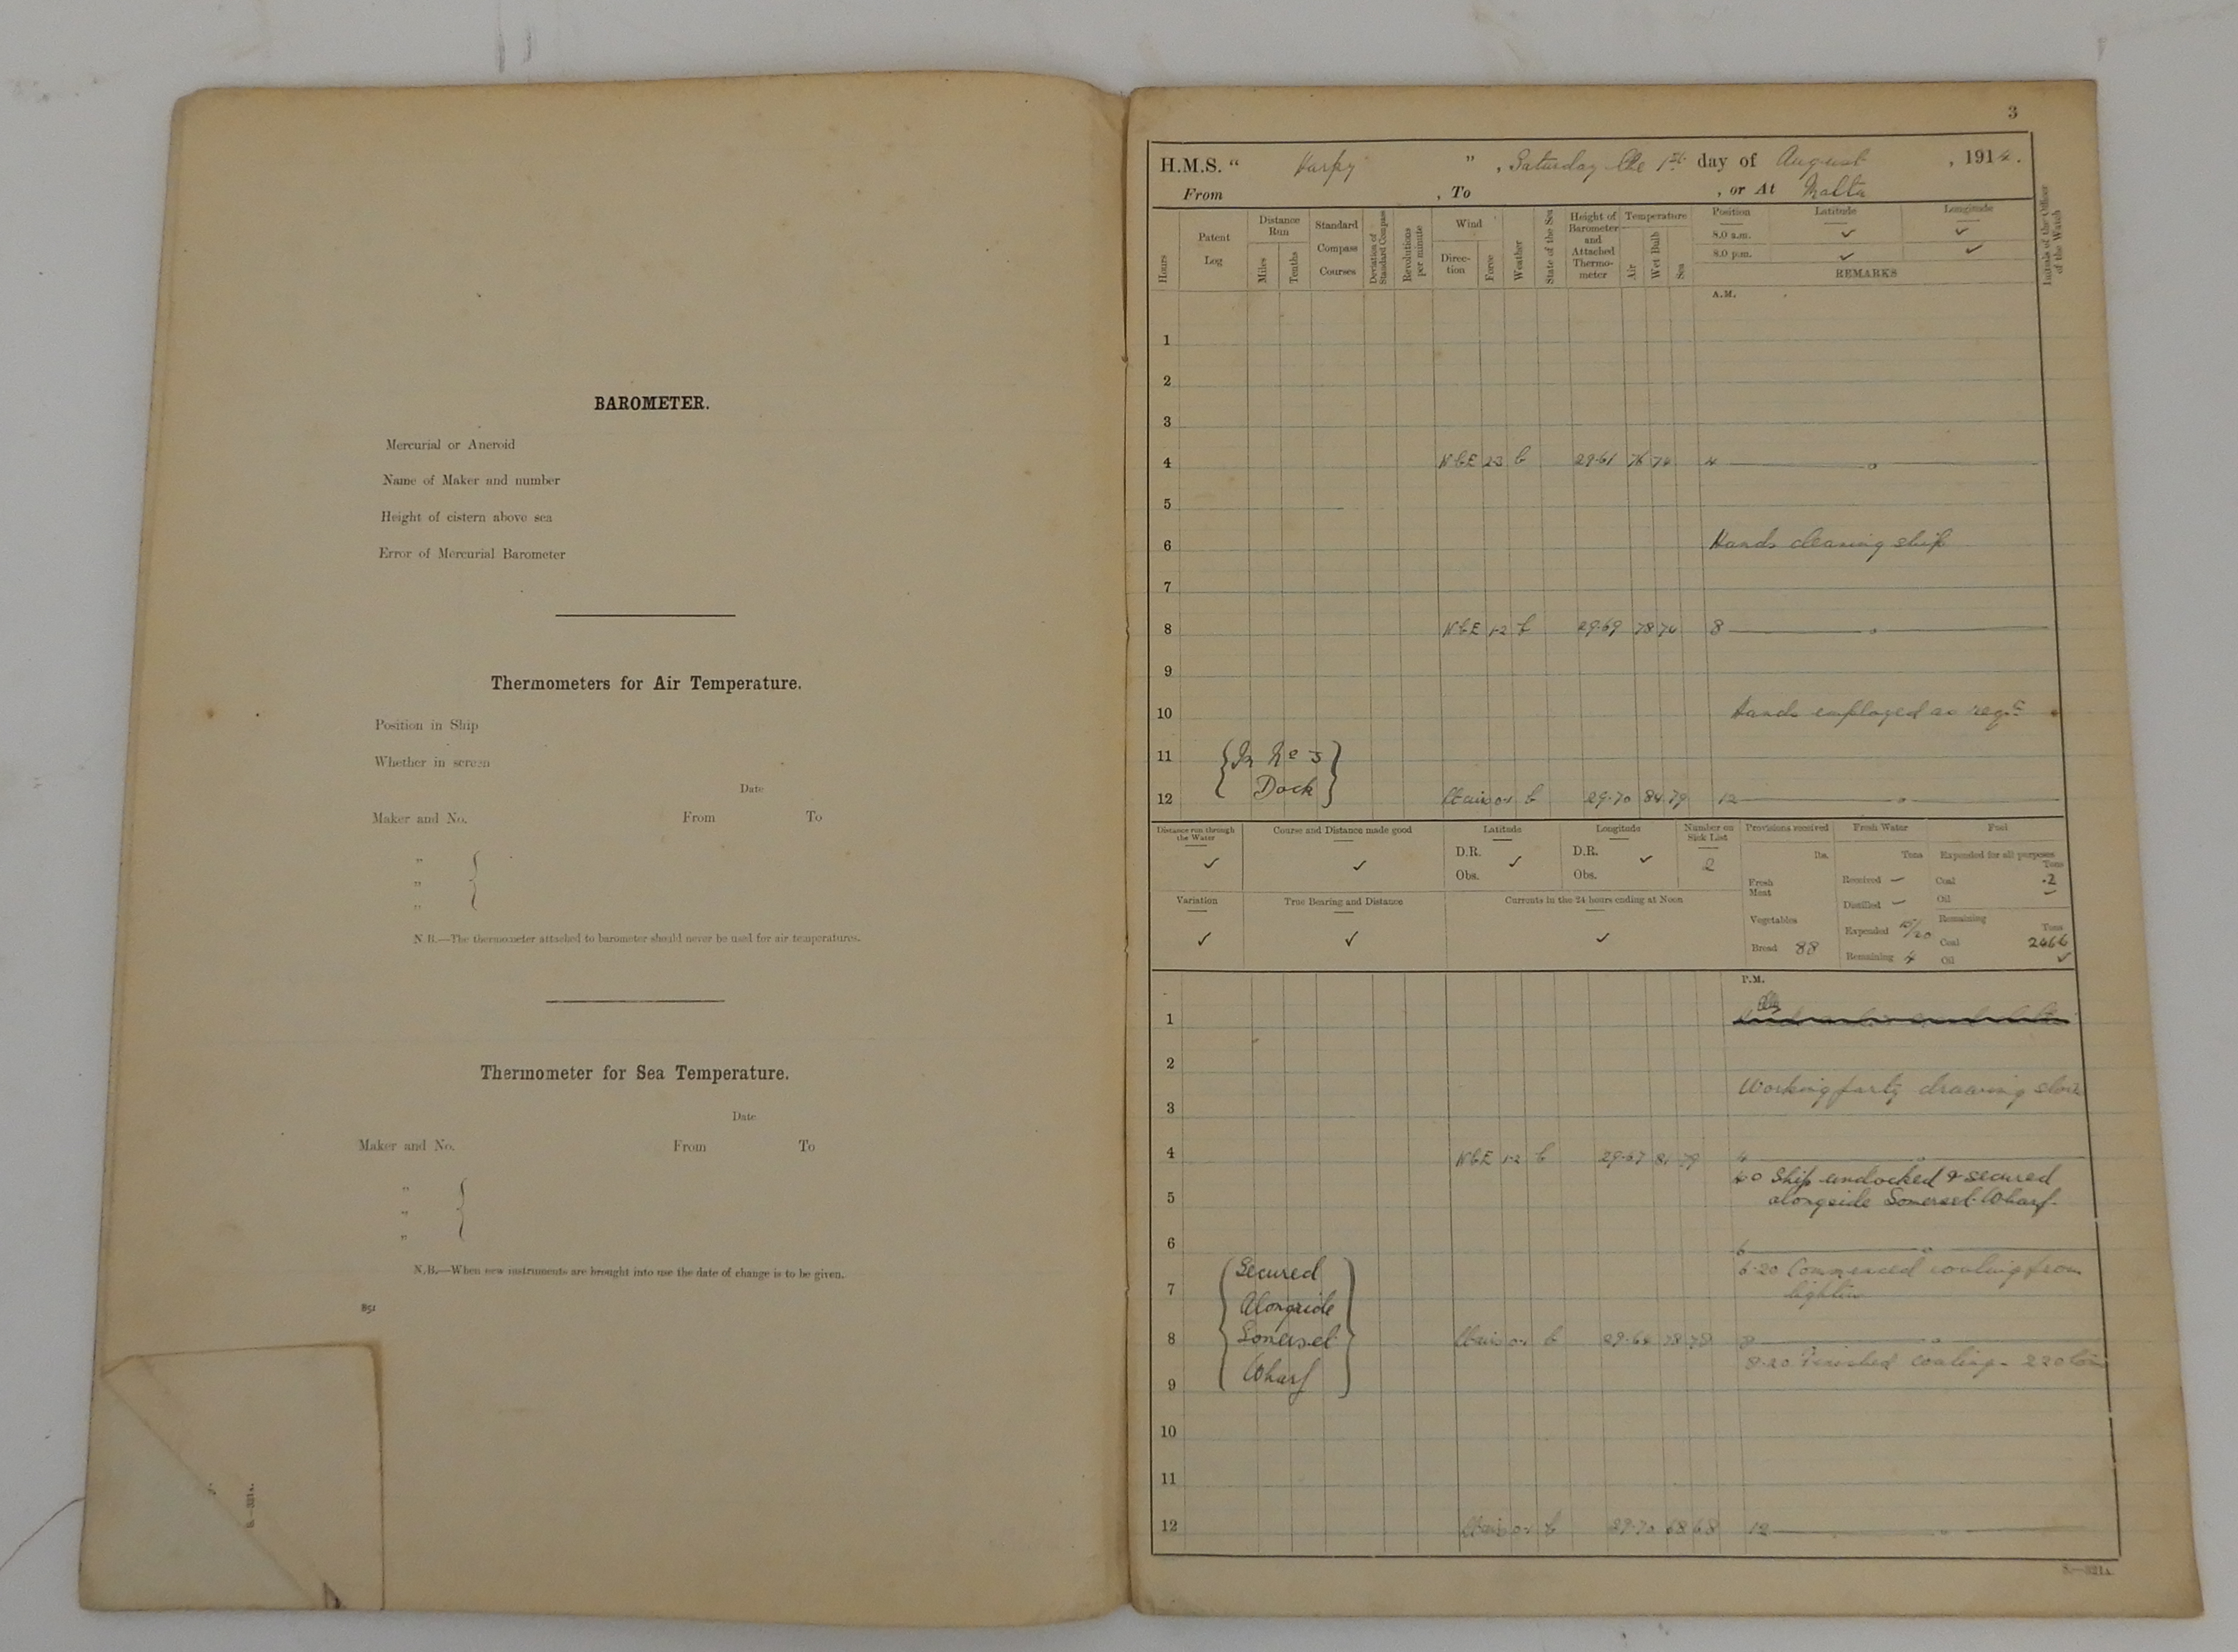 BAROMETER.
Mercurial or Aneroid
Name of Maker and number
Height of cistern above sea
Error of Mercurial Barometer
Thermometers for Air Temperature.
Position in Ship
Whether in screen
Date
Maker and No. From To
" {
"
"
N.B.—The thermometer attached to barometer should never be used for air temperatures.
Thermometer for Sea Temperature.
Date
Maker and No. From To
" {
"
"
N.B.—When new instruments are brought into use the date of change is to be given.
851
S.—321A.
3
H.M.S. " Harpy " , Saturday the 1st day of August , 1914.
From , To , or At Malta
Hours
Patent Log
Distance Run
Miles
Tenths
Standard Compass Courses
Deviation of Standard Compass
Revolutions per minute
Wind
Direc-tion
Force
Weather
State of the Sea
Height of Barometer and Attached Thermo-meter
Temperature
Air
Wet Bulb
Sea
Position Latitude Longitude
8.0 a.m. ✓ ✓
8.0 p.m. ✓ ✓
REMARKS
Initials of the Officer of the Watch
A.M.
1
2
3
4 NbE 2-3 b 29.61 76 74 4
5
6 Hands cleaning ship
7
8 NbE 1-2 b 29.69 78 74 8
9
10 Hands employed as reqd
11 {In No 3
12 Dock} b 29.70 84 79 12
Distance run through the Water ✓
Course and Distance made good ✓
Latitude
D.R. ✓
Obs.
Longitude
D.R. ✓
Obs.
Number on Sick List
2
Provisions received
lbs.
Fresh Meat
Vegetables
Bread 88
Fresh Water
Tons
Received —
Distilled —
Expended
Remaining 4
Fuel
Expended for all purposes
Tons
Coal .2
Oil —
Remaining
Tons
Coal
Oil ✓
Variation ✓
True Bearing and Distance ✓
Currents in the 24 hours ending at Noon ✓
P.M.
1
2
Working party drawing
3
4 NbE 1-2 b 29.67 81 79 4
4.0 Ship undocked & secured
5 alongside Somerset Wharf.
6 6
{Secured 6.20 Commenced coaling from
7 Alongside lighter
8 Somerset b 8
Wharf} 8.20 Finished coaling - 220 tons
9
10
11
12 b 29.70 68 68 12
S.—321A.